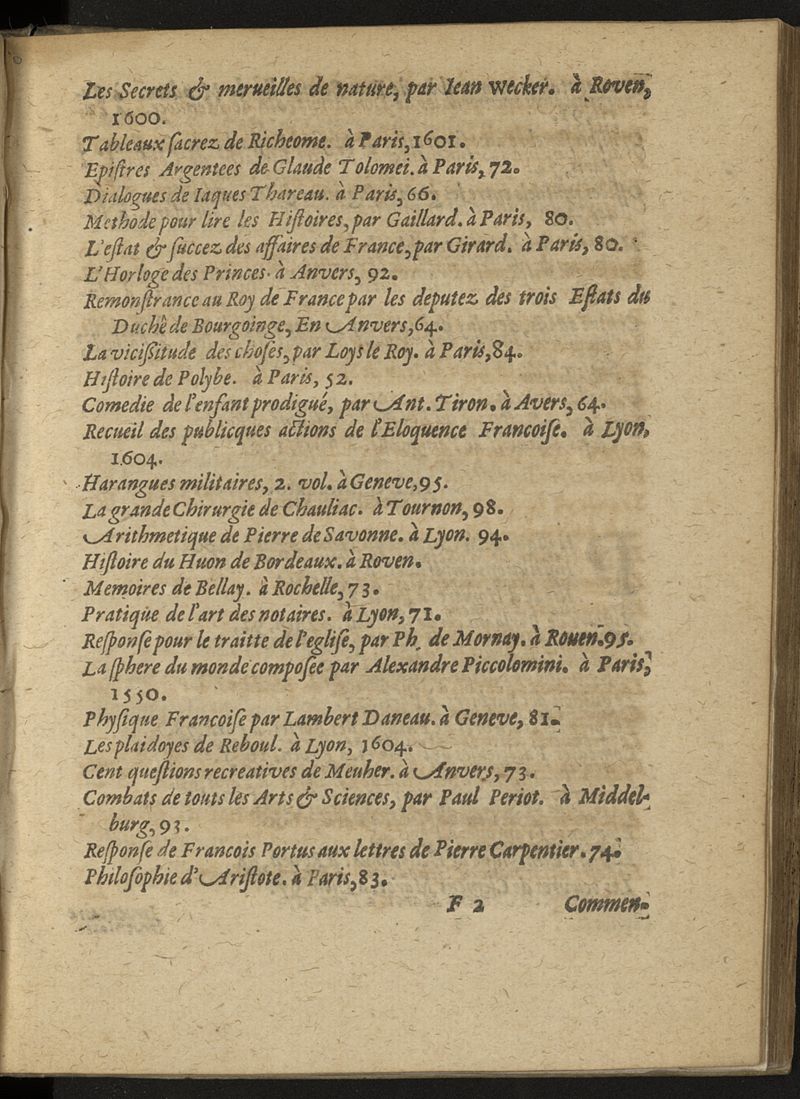 Les Secrets & merueilles de nature, par Iean Wecker. à Roven,
1600.
Tableaux sacrez de Richeome. à Paris, 1601.
Epistres Argentees de Glaude Tolomei. à Paris, 72.
Dialogues de Iaques Thareau. à Paris, 66.
Methode pour lire les Histoires, par Gaillard. à Paris, 80.
L'estat & succez des affaires de France, par Girard. à Paris, 80.
L'Horloge des Princes. à Anvers, 92.
Remonstrance au Roy de France par les deputez des trois Estats du
Duchè de Bourgoinge, En Anvers, 64.
La vicissitude des choses, par Loys le Roy. à Paris, 84.
Histoire de Polybe. à Paris, 52.
Comedie de l'enfant prodigué, par Ant. Tiron. à Avers, 64.
Recueil des publicques actions de l'Eloquence Francoise. à Lyon,
1604.
Harangues militaires, 2. vol. à Geneve, 95.
La grande Chirurgie de Chauliac. à Tournon, 98.
Arithmetique de Pierre de Savonne. à Lyon. 94.
Histoire du Huon de Bordeaux. à Roven.
Memoires de Bellay. à Rochelle, 73.
Pratique de l'art des notaires. à Lyon, 71.
Response pour le traitte de l'eglise, par Ph. de Mornay. à Rouen. 95.
La sphere du monde composee par Alexandre Piccolomini. à Paris,
1550.
Physique Francoise par Lambert Daneau. à Geneve, 81.
Les plaidoyes de Reboul. à Lyon, 1604.
Cent questions recreatives de Meuher. à Anvers, 73.
Combats de touts les Arts & Sciences, par Paul Periot. à Middel-
burg, 93.
Response de Francois Portus aux lettres de Pierre Carpentier. 74.
Philosophie d'Aristote. à Paris, 83.
F 2 Commen-